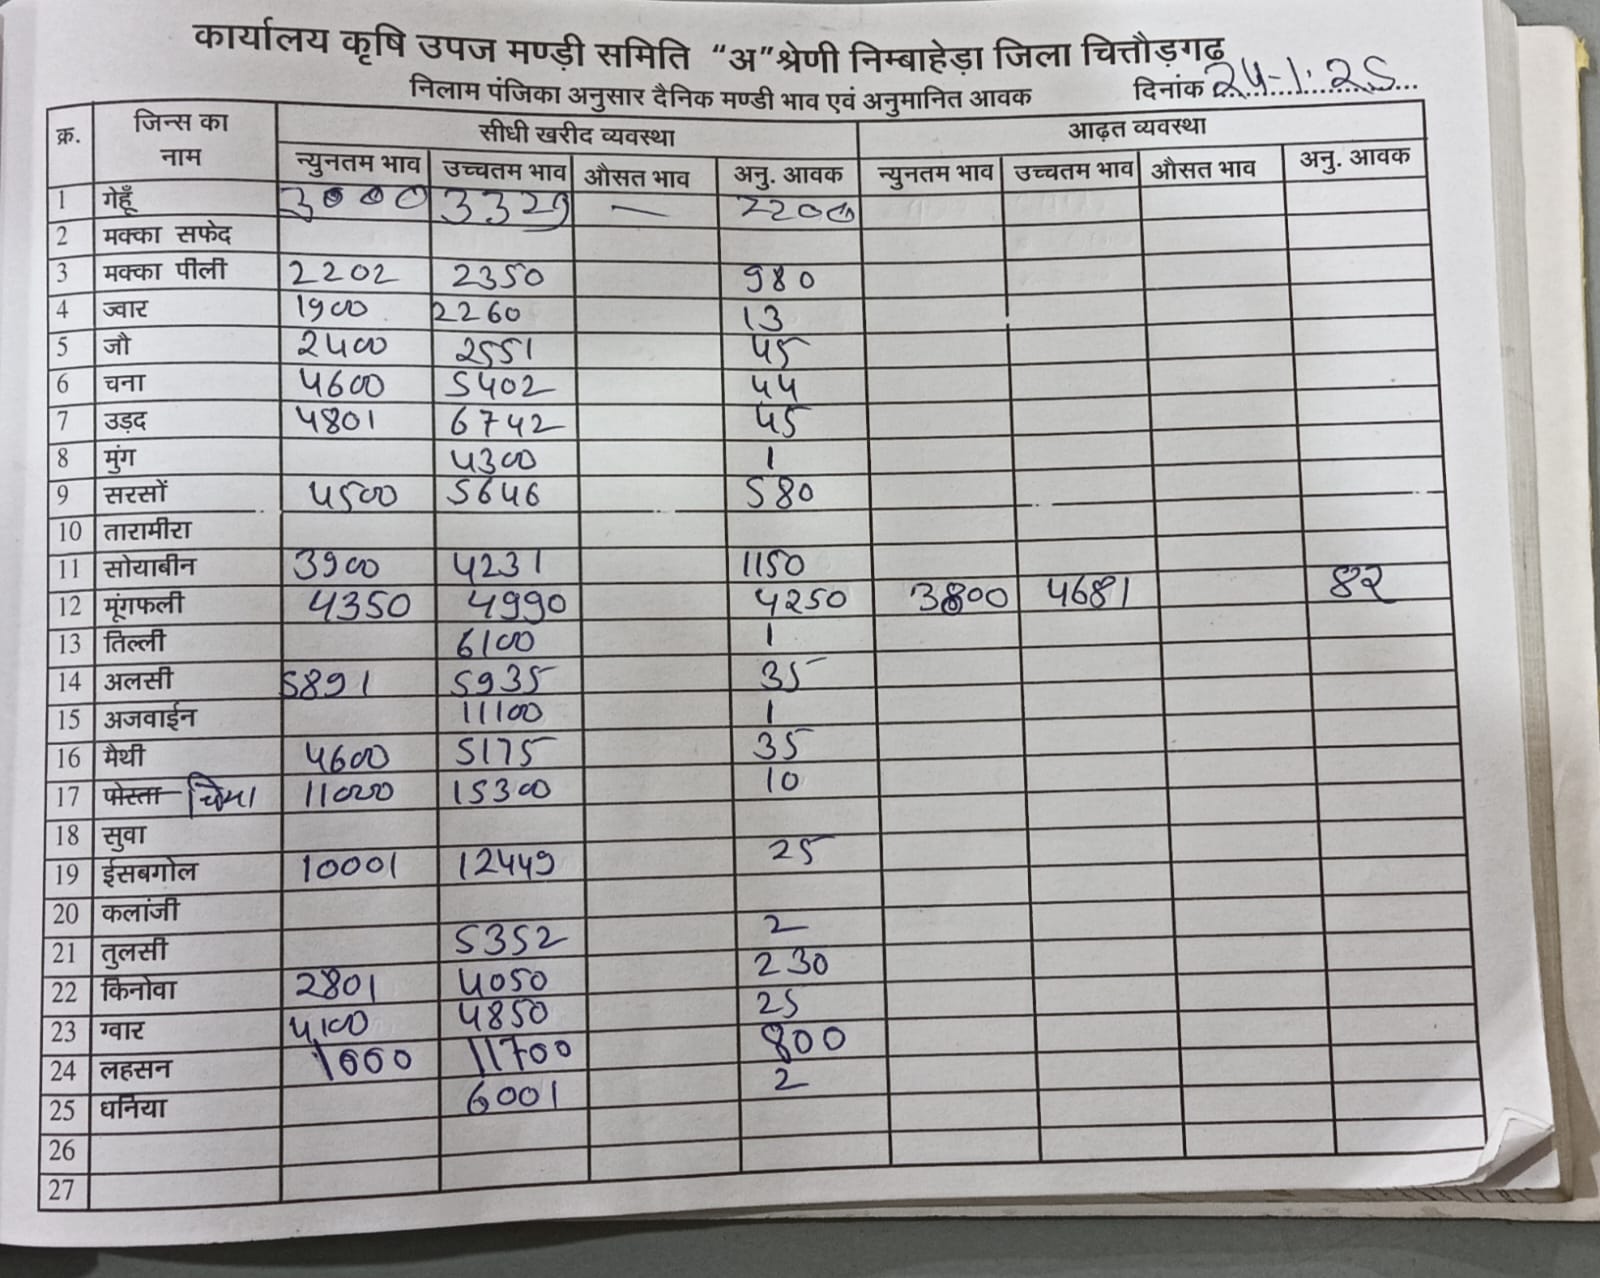 कार्यालय कृषि उपज मण्ड़ी समिति “अ”श्रेणी निम्बाहेड़ा जिला चित्तौड़गढ़
निलाम पंजिका अनुसार दैनिक मण्डी भाव एवं अनुमानित आवक दिनांक 24-1.25
क्र. जिन्स का नाम सीधी खरीद व्यवस्था आढ़त व्यवस्था
न्युनतम भाव उच्चतम भाव औसत भाव अनु. आवक न्युनतम भाव उच्चतम भाव औसत भाव अनु. आवक
1 गेहूँ 3000 3329 — 2200
2 मक्का सफेद
3 मक्का पीली 2202 2350 980
4 ज्वार 1900 2260 13
5 जौ 2400 2551 45
6 चना 4600 5402 44
7 उड़द 4801 6742 45
8 मुंग 4300 1
9 सरसों 4500 5646 580
10 तारामीरा
11 सोयाबीन 3900 4231 1150
12 मूंगफली 4350 4990 4250 3800 4681 82
13 तिल्ली 6100 1
14 अलसी 5891 5935 35
15 अजवाईन 11100 1
16 मैथी 4600 5175 35
17 पोस्ता चिया 11000 15300 10
18 सुवा
19 ईसबगोल 10001 12449 25
20 कलांजी
21 तुलसी 5352 2
22 किनोवा 2801 4050 230
23 ग्वार 4100 4850 25
24 लहसन 1000 11700 800
25 धनिया 6001 2
26
27